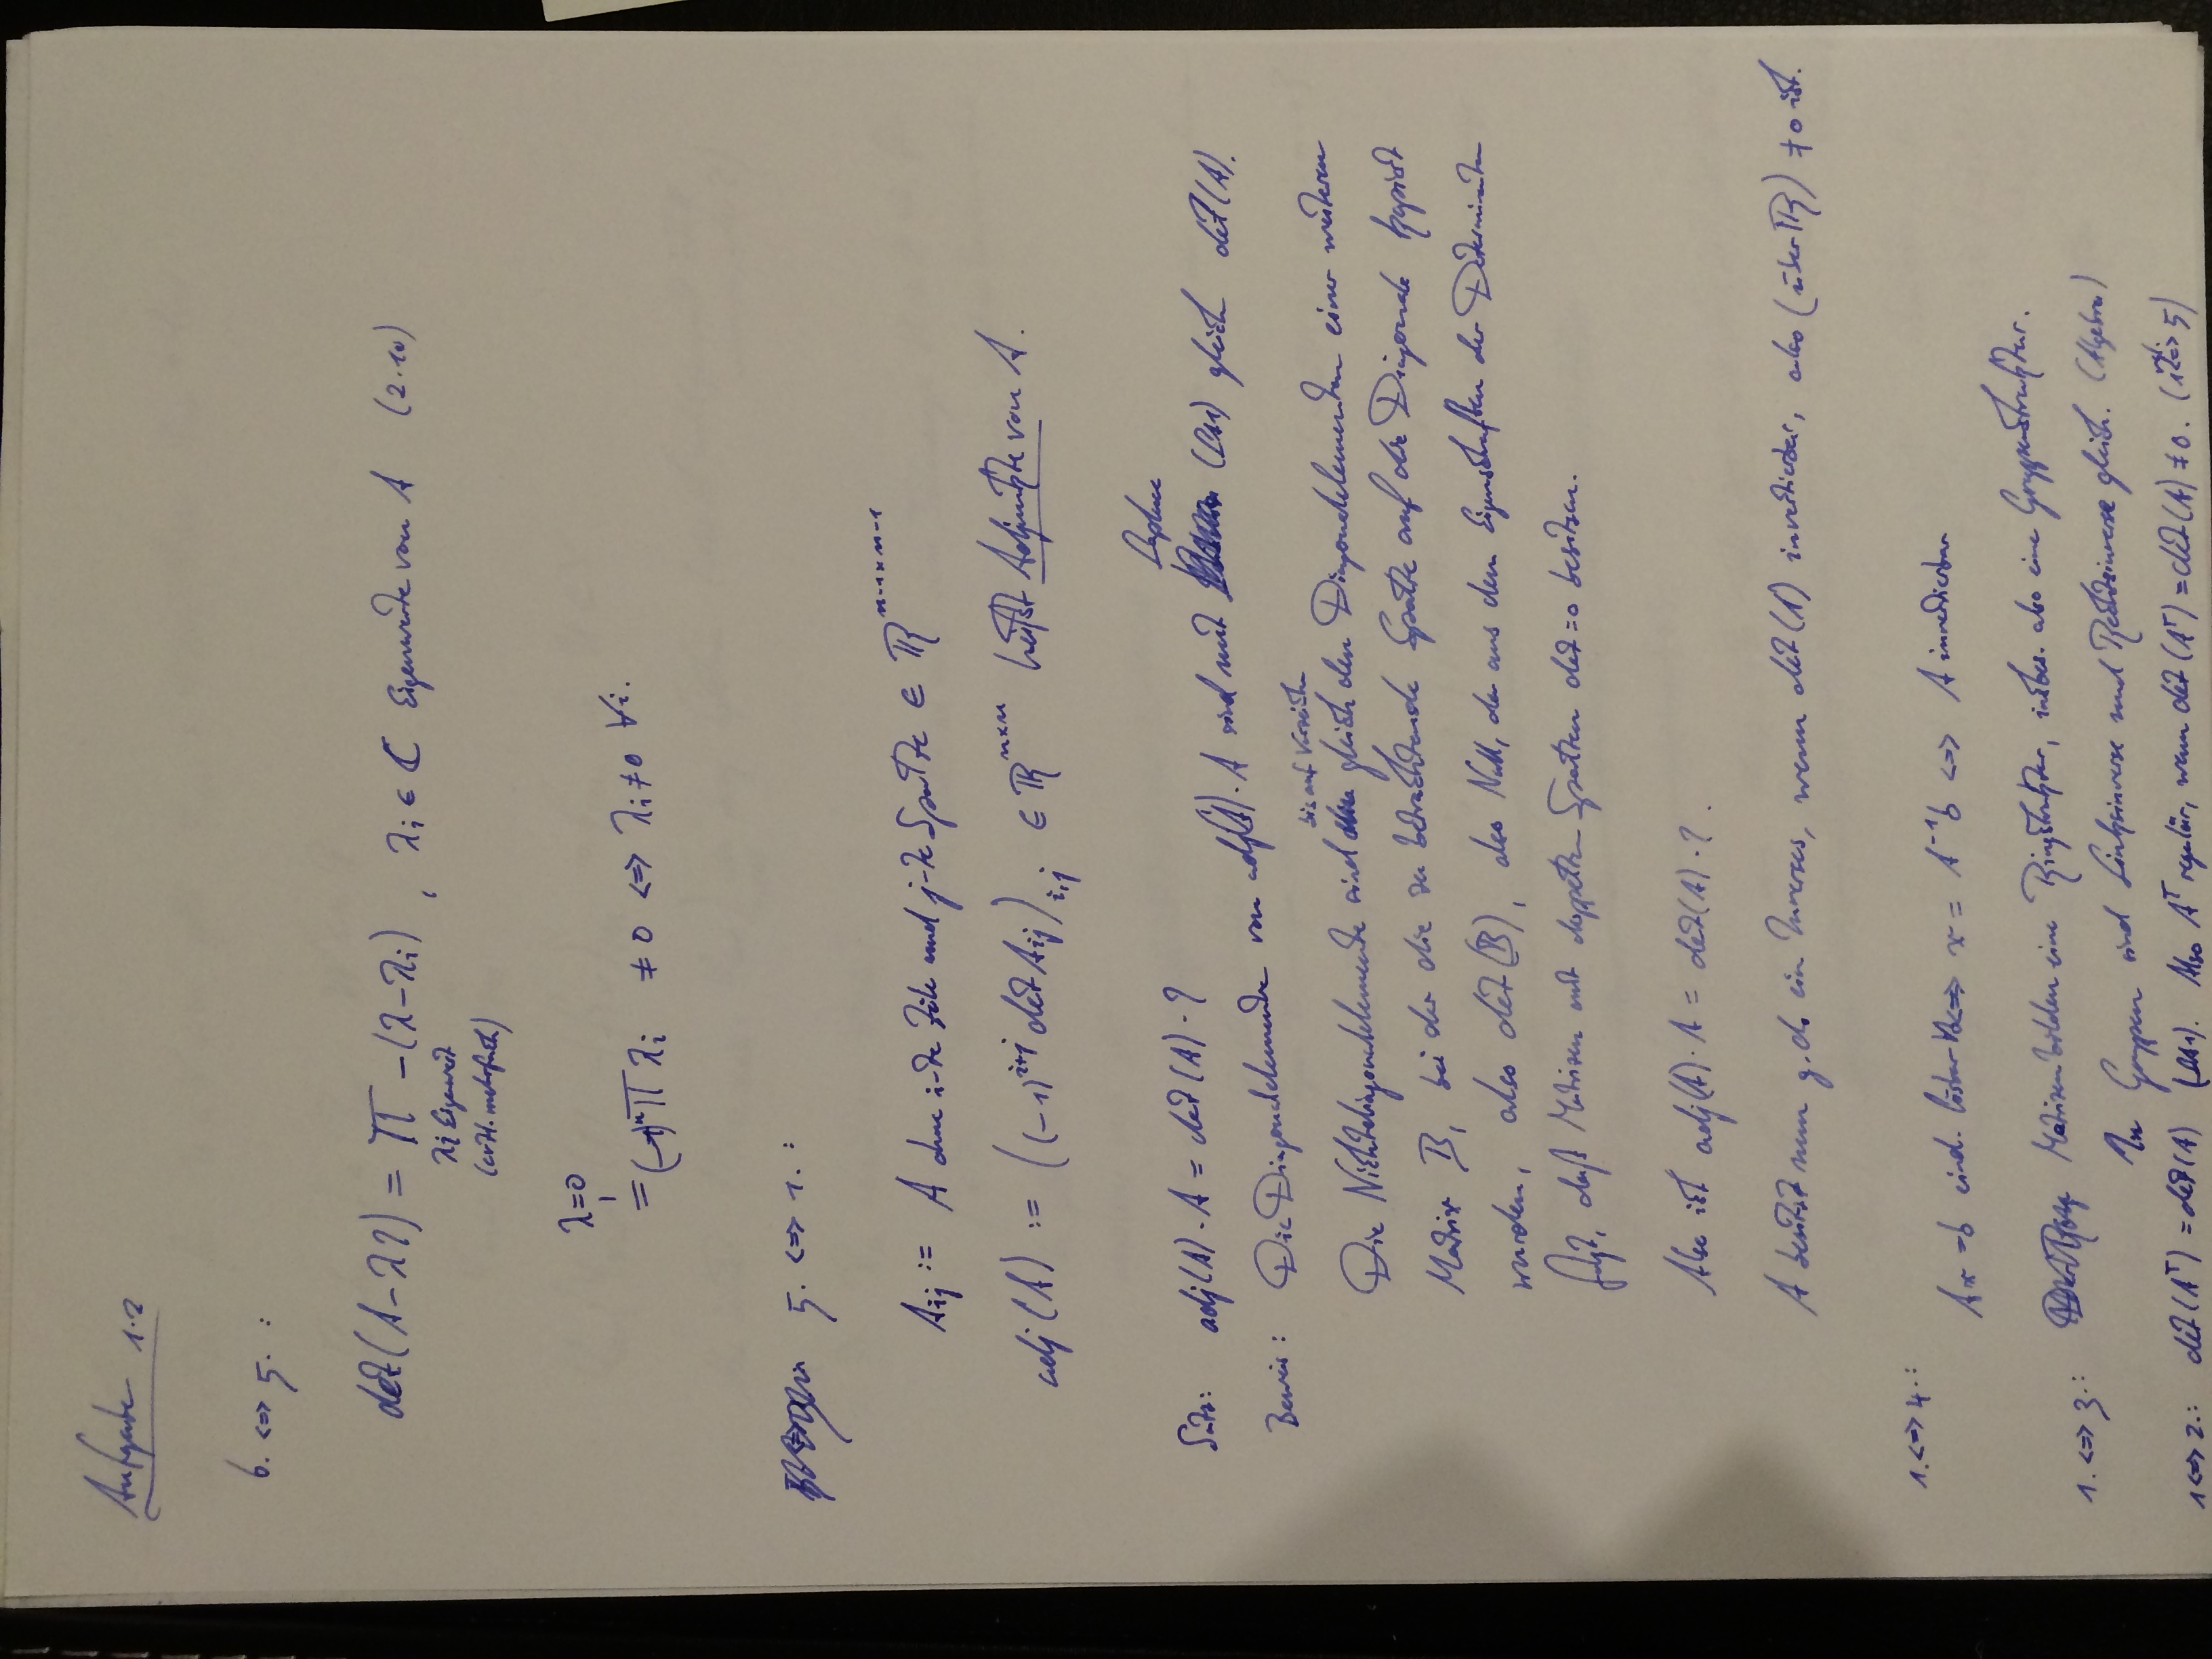 Aufgabe 1.2
6. <=> 5. :
det(A-λI) = ∏ -(λ-λi) , λi ∈ ℂ Eigenwerte von A (2.10)
λi Eigenwert
(evtl. mehrfach)
λ=0
= (-1)ⁿ∏λi ≠ 0 <=> λi≠0 ∀i.
5. <=> 1. :
Aij := A ohne i-te Zeile und j-te Spalte ∈ ℝⁿ⁻¹ˣⁿ⁻¹
adj(A) := ((-1)ⁱ⁺ʲ det Aij)i,j ∈ ℝⁿˣⁿ heißt Adjunkte von A.
Satz: adj(A)·A = det(A)·I
Laplace
Beweis: Die Diagonalelemente von adj(A)·A sind mit (LA1) gleich det(A).
bis auf Vorzeichen
Die Nichtdiagonalelemente sind gleich den Diagonalelementen einer weiteren
Matrix B, bei der die zu betrachtende Spalte auf die Diagonale kopiert
wurden, also det(B), also Null, da aus den Eigenschaften der Determinante
folgt, daß Matrizen mit doppelten Spalten det=0 besitzen.
Also ist adj(A)·A = det(A)·I.
A besitzt nun g.d. ein Inverses, wenn det(A) invertierbar, also (über ℝ) ≠ 0 ist.
1.<=>4.: Ax=b eind. lösbar <=> x = A⁻¹b <=> A invertierbar
1.<=>3.: Matrizen bilden eine Ringstruktur, insbes. also eine Gruppenstruktur.
In Gruppen sind Linksinverse und Rechtsinverse gleich. (Algebra)
1<=>2.: det(Aᵀ) = det(A) (LA1). Also Aᵀ regulär, wenn det(Aᵀ) = det(A) ≠ 0. (vgl. 1<=>5)